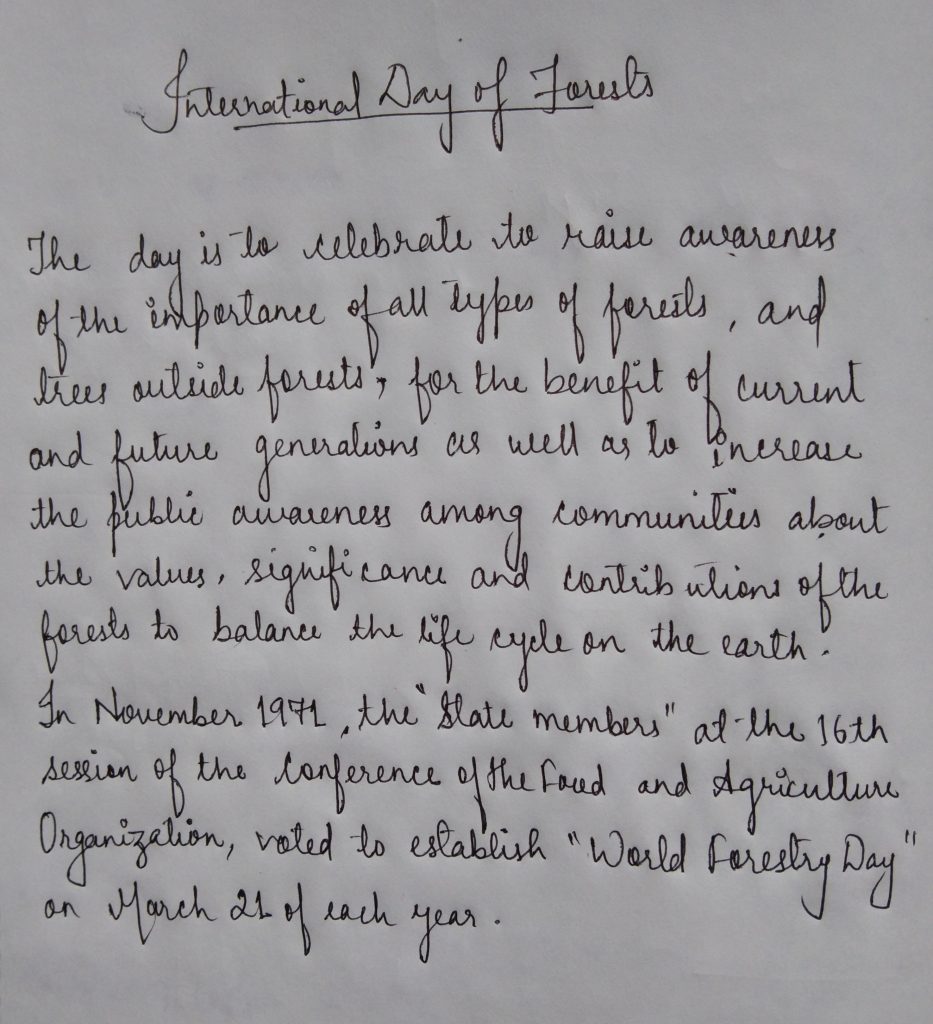 International Day of Forests
The day is to celebrate to raise awareness
of the importance of all types of forests, and
trees outside forests, for the benefit of current
and future generations as well as to increase
the public awareness among communities about
the values, significance and contributions of the
forests to balance the life cycle on the earth.
In November 1971, the "State members" at the 16th
session of the Conference of the Food and Agriculture
Organization, voted to establish "World Forestry Day"
on March 21 of each year.